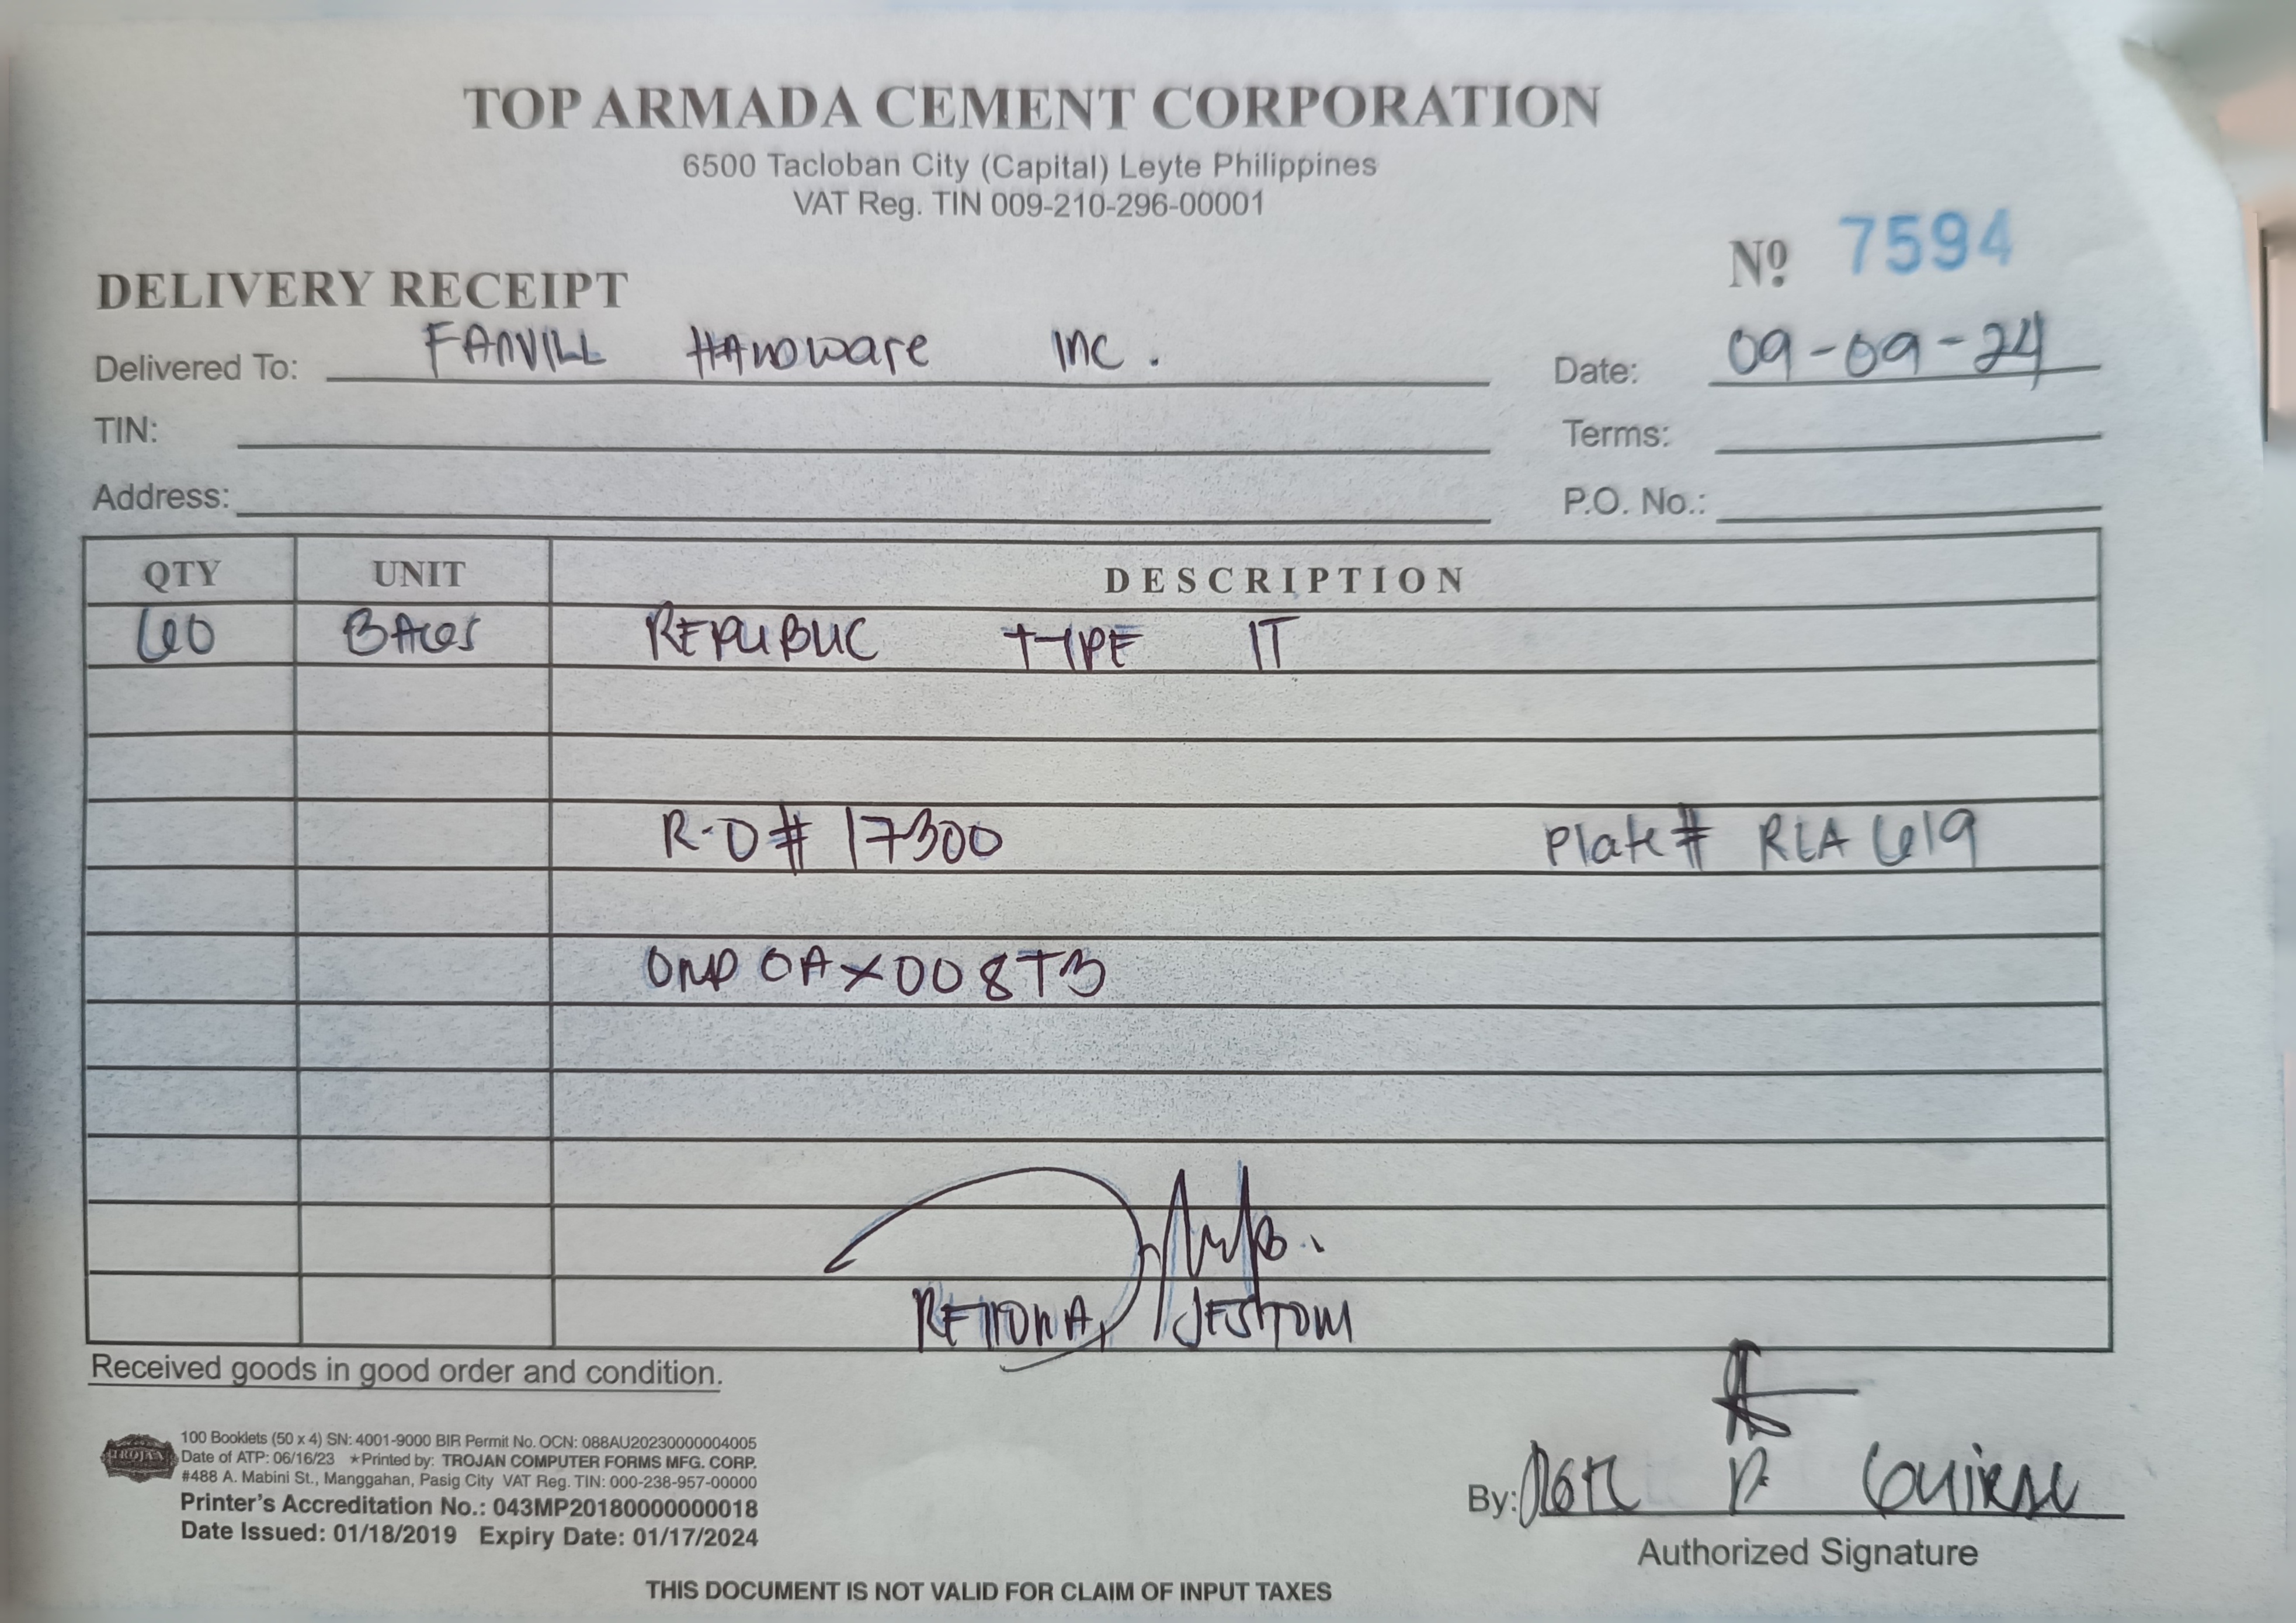 TOP ARMADA CEMENT CORPORATION
6500 Tacloban City (Capital) Leyte Philippines
VAT Reg. TIN 009-210-296-00001
Nº 7594
DELIVERY RECEIPT
Delivered To: FANVILL HARDware Inc.
Date: 09-09-24
TIN:
Terms:
Address:
P.O. No.:
QTY UNIT DESCRIPTION
60 BAGS REPUBLIC TYPE IT
R-O# 17300 Plate# RLA 619
OMP OAX008T3
JESTOM
Received goods in good order and condition.
TROJAN
100 Booklets (50 x 4) SN: 4001-9000 BIR Permit No. OCN: 088AU20230000004005
Date of ATP: 06/16/23 ★Printed by: TROJAN COMPUTER FORMS MFG. CORP.
#488 A. Mabini St., Manggahan, Pasig City VAT Reg. TIN: 000-238-957-00000
Printer's Accreditation No.: 043MP20180000000018
Date Issued: 01/18/2019 Expiry Date: 01/17/2024
By:
Authorized Signature
THIS DOCUMENT IS NOT VALID FOR CLAIM OF INPUT TAXES